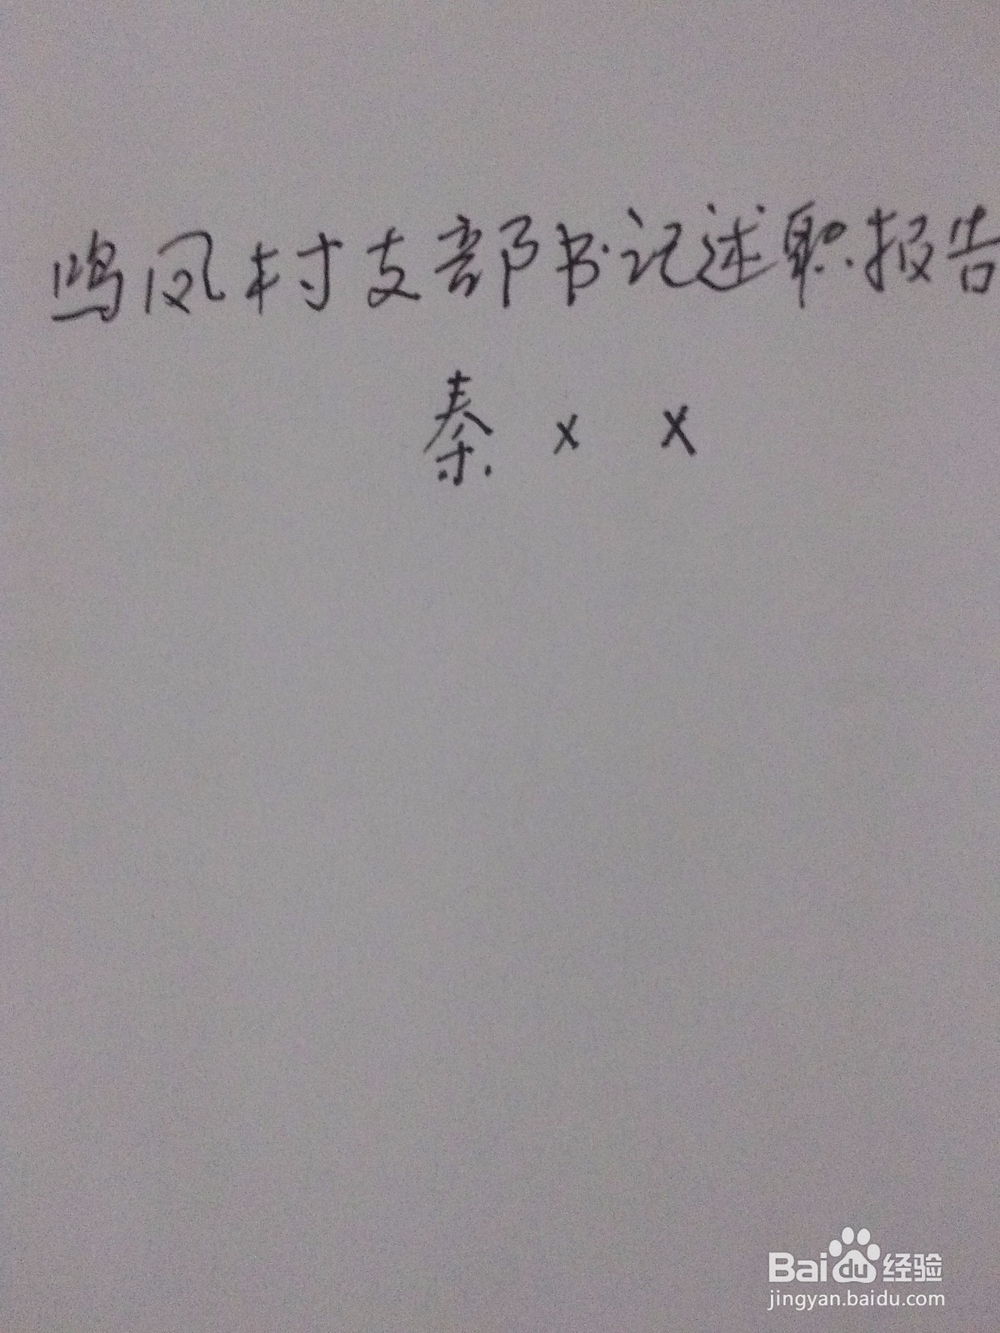 鸣凤村支部书记述职报告
秦 x x
Baidu 经验
jingyan.baidu.com